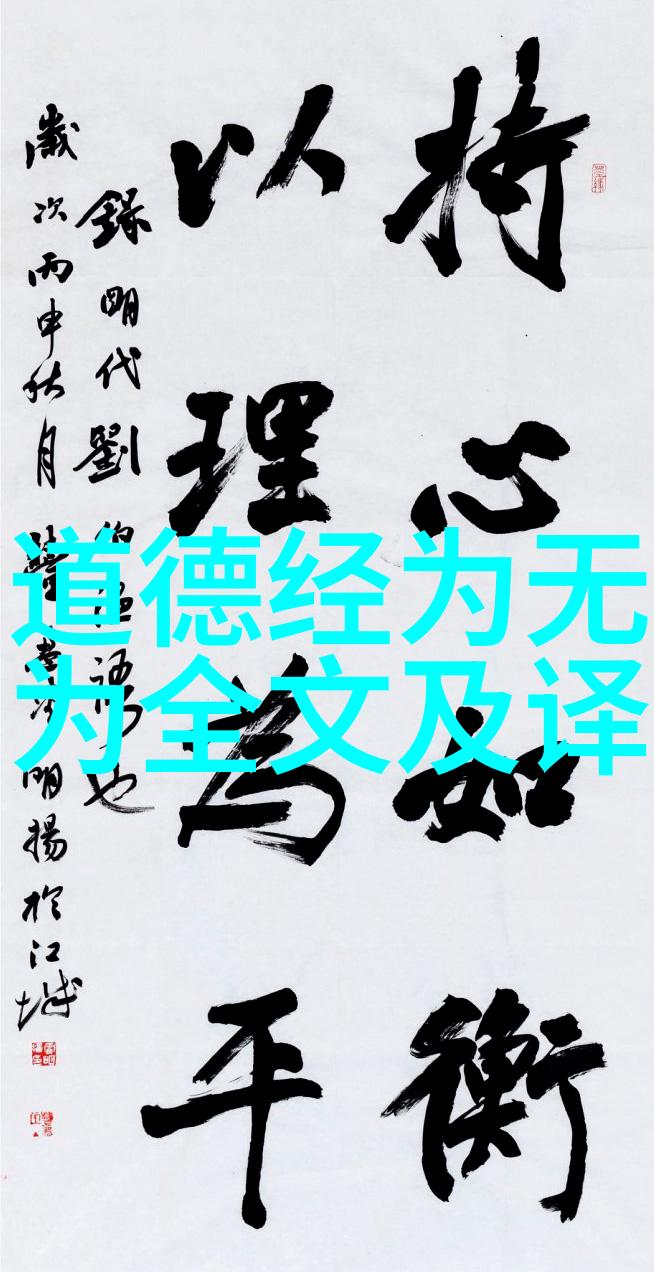 持心如衡
以理为平
錄明代劉伯温語也
歲次丙申秋月
明揚於江城
道德经为无
为全文及译